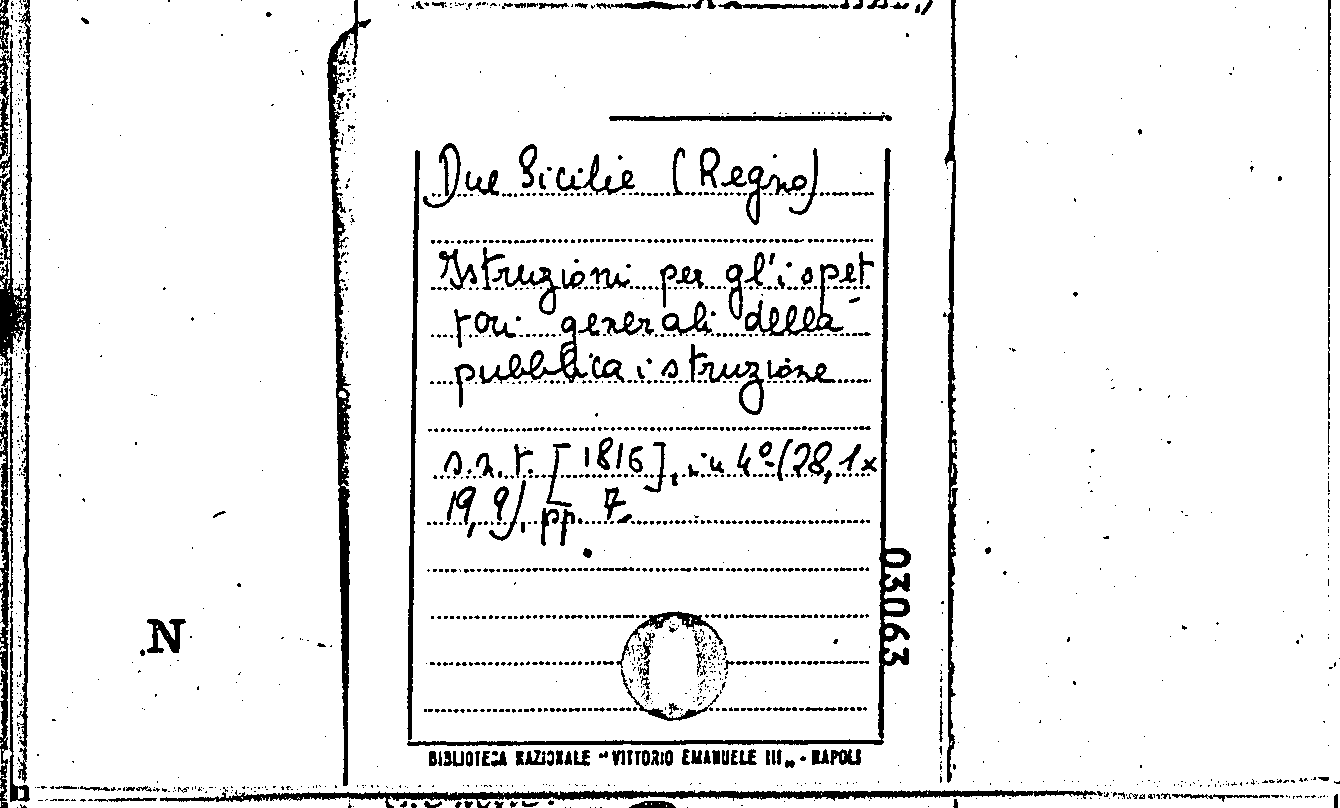 Due Sicilie (Regno)
Istruzioni per gl'ispet-
tori generali della
pubblica istruzione
s.n.t. [1816], in 4º (28,1x
19,9), pp. 7.
03063
N
BIBLIOTECA NAZIONALE "VITTORIO EMANUELE III" - NAPOLI